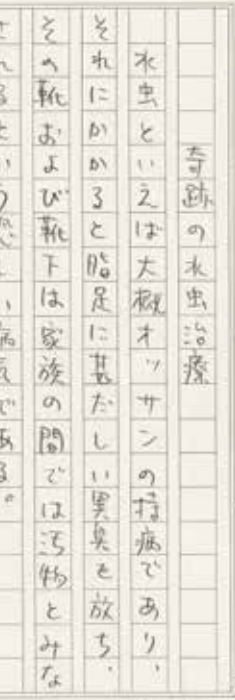 奇跡の水虫治療
水虫といえば大概オッサンの持病であり、
それにかかると脂足に甚だしい異臭を放ち、
その靴および靴下は家族の間では汚物とみな